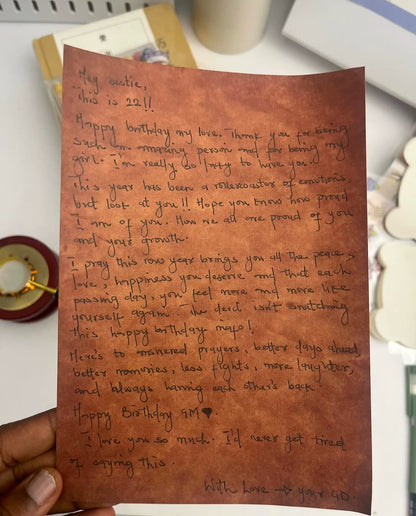 Hey austie,
This is 22!!
Happy birthday my love. Thank you for being
such an amazing person and for being my
girl. I'm really so lucky to have you.
This year has been a rollercoaster of emotions,
but look at you!! Hope you know how proud
I am of you. How we all are proud of you
and your growth.
I pray this new year brings you all the peace,
love, happiness you deserve and that each
passing day, you feel more and more like
yourself again. The devil isn't snatching
this happy birthday mafo!
Here's to answered prayers, better days ahead,
better memories, less fights, more laughter,
and always having each other's back.
Happy Birthday GM♥
I love you so much. I'd never get tired
of saying this.
With Love → your GD.